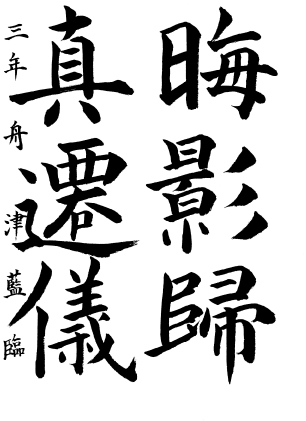 晦影歸
真遷儀
三年舟津藍臨